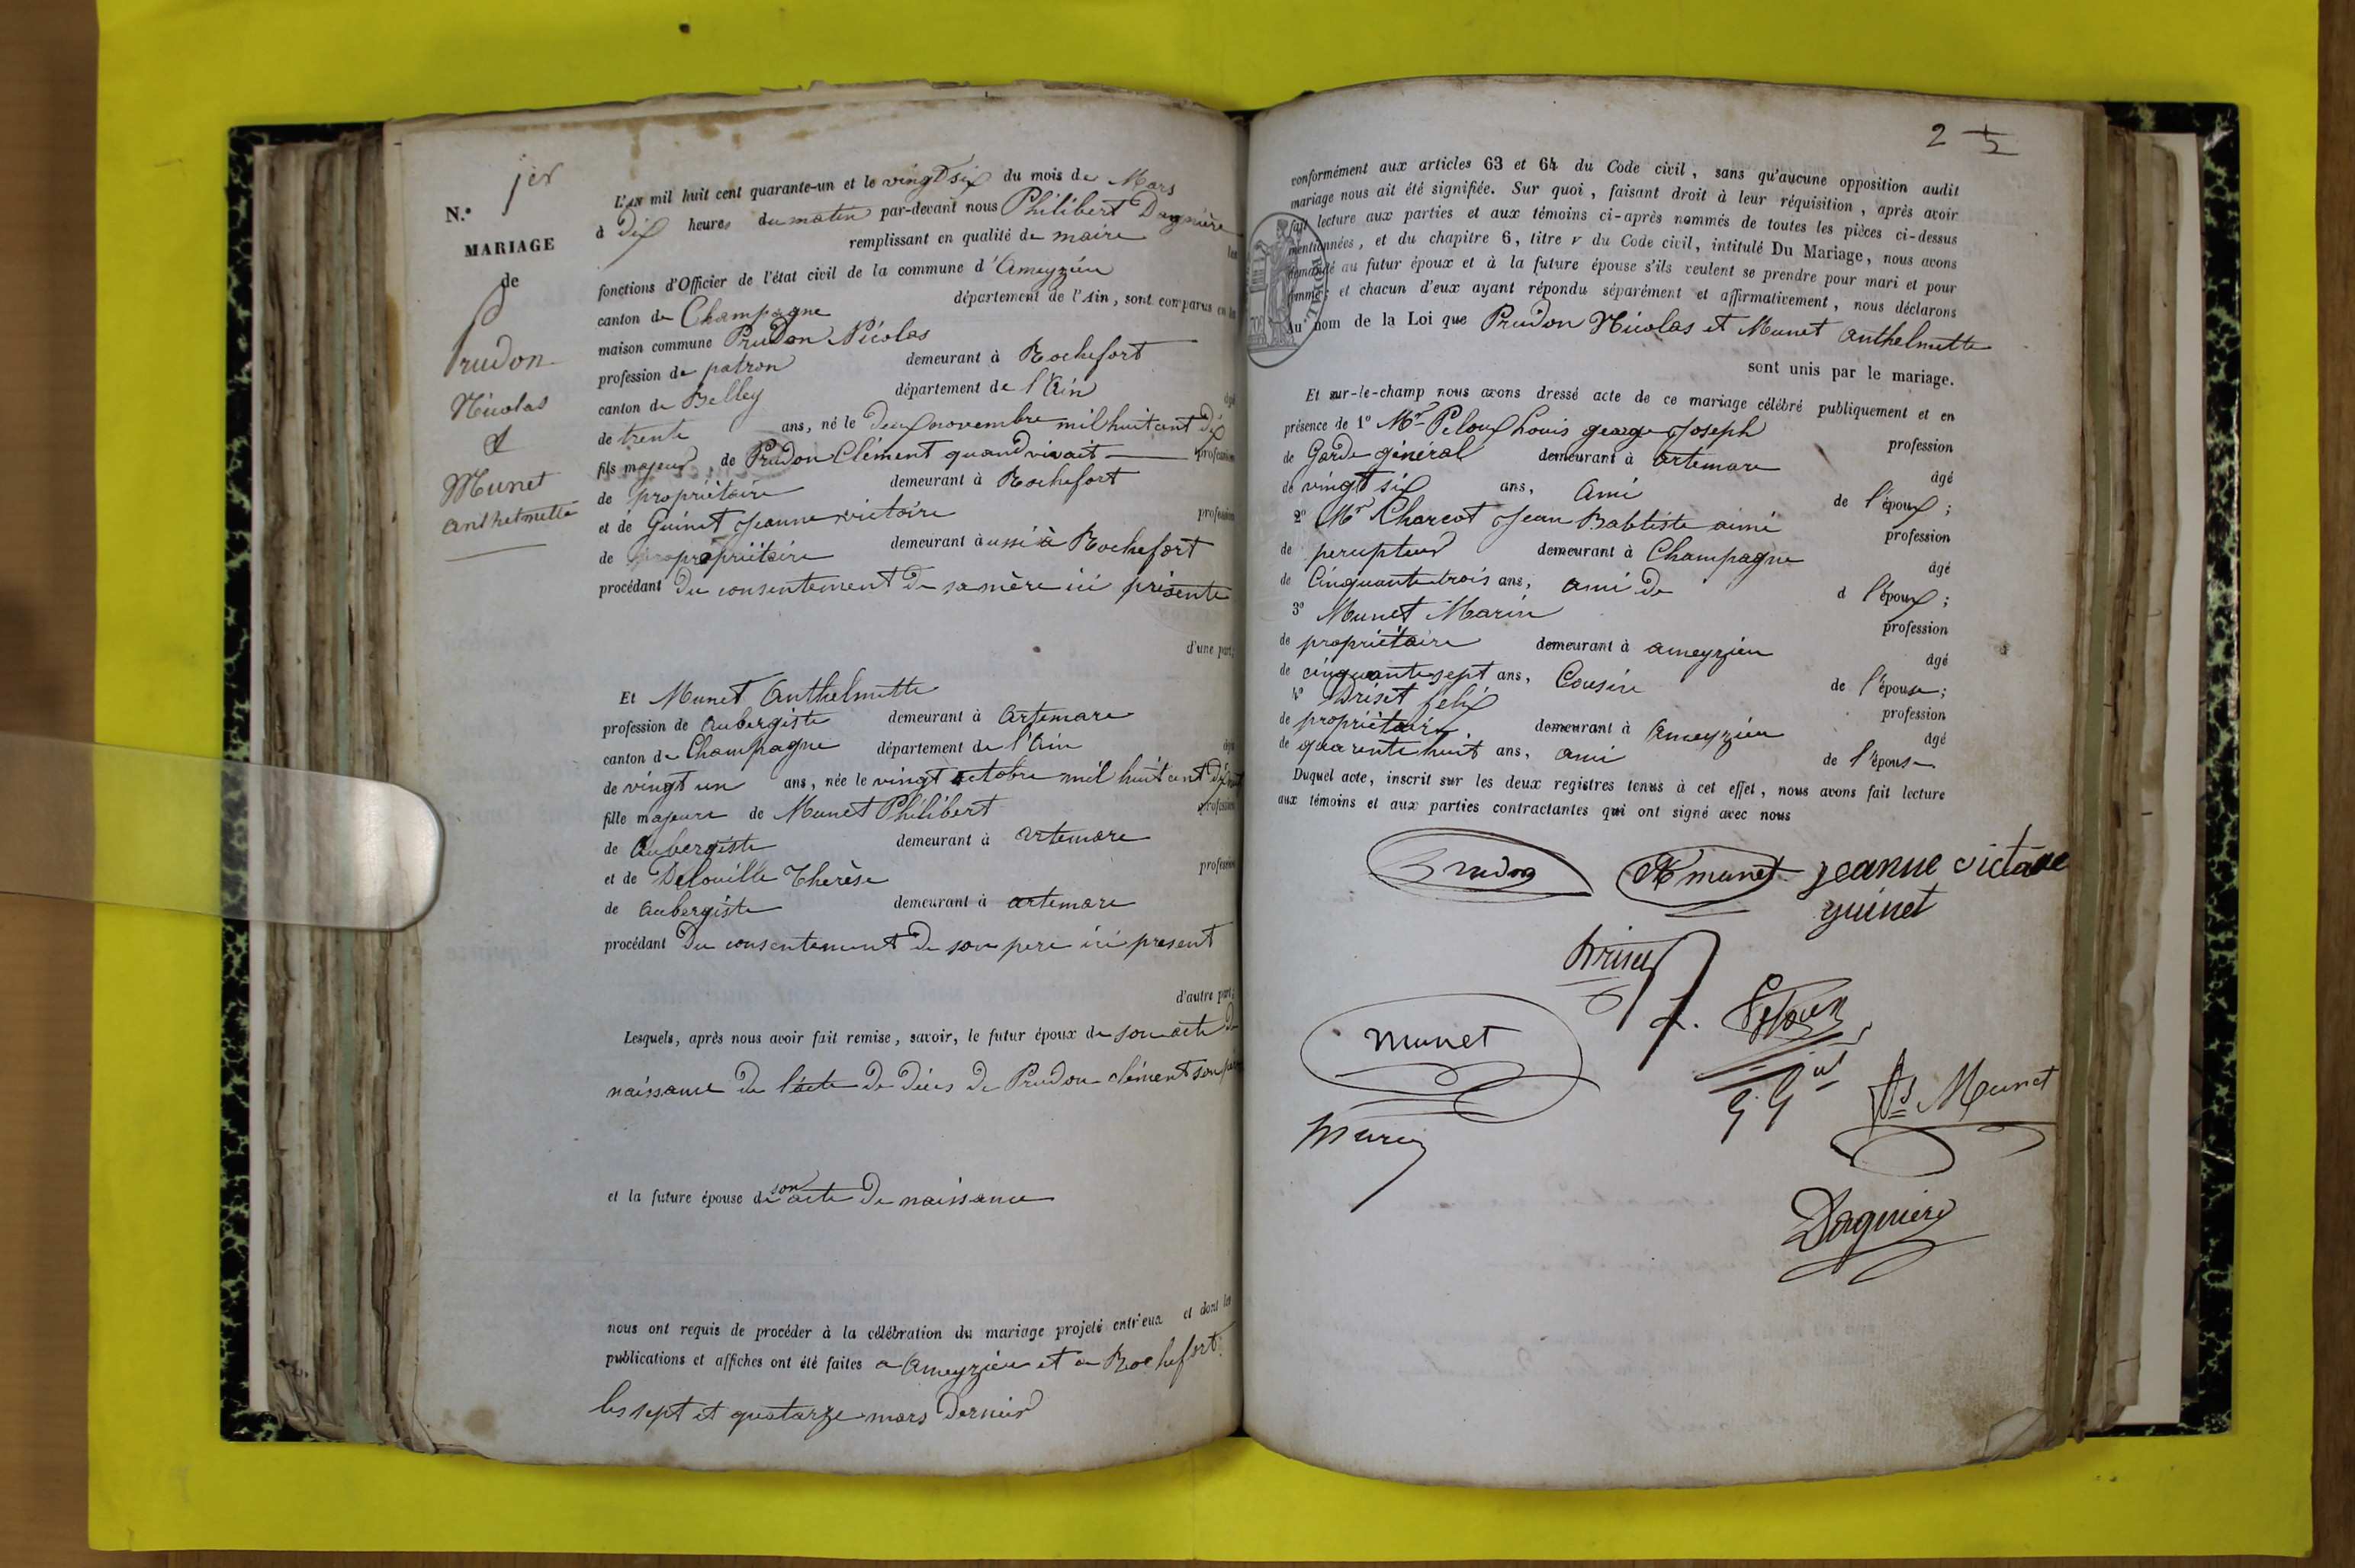 N.° 1er
MARIAGE
de
Prudon
Nicolas
&
Munet
anthelmette
L'AN mil huit cent quarante-un et le vingt six du mois de Mars
à Dix heures du matin par-devant nous Philibert Dagnière
remplissant en qualité de maire les
fonctions d'Officier de l'état civil de la commune d'Ameyzieu
canton de Champagne département de l'Ain, sont comparus en la
maison commune Prudon Nicolas
profession de patron demeurant à Rochefort
canton de Belley département de l'Ain âgé
de trente ans, né le Deux novembre mil huit cent Dix
fils majeur de Prudon Clément quand vivait profession
de propriétaire demeurant à Rochefort
et de Guinet Jeanne victoire profession
de propriétaire demeurant aussi à Rochefort
procédant Du consentement De sa mère ici présente
d'une part;
Et Munet Anthelmette
profession de Aubergiste demeurant à Artemare
canton de Champagne département de l'Ain âgée
de vingt un ans, née le vingt octobre mil huit cent Dix
fille majeure de Munet Philibert profession
de Aubergiste demeurant à artemare
et de Delouille Thérèse profession
de Aubergiste demeurant à artemare
procédant Du consentement De son pere ici présent
d'autre part;
Lesquels, après nous avoir fait remise, savoir, le futur époux de son acte De
naissance De l'acte De décès De Prudon clément son père
et la future épouse de son acte De naissance
nous ont requis de procéder à la célébration du mariage projeté entr'eux et dont les
publications et affiches ont été faites a Ameyzieu et a Rochefort
les sept et quatorze mars Dernier
2
conformément aux articles 63 et 64 du Code civil, sans qu'aucune opposition audit
mariage nous ait été signifiée. Sur quoi, faisant droit à leur réquisition, après avoir
fait lecture aux parties et aux témoins ci-après nommés de toutes les pièces ci-dessus
mentionnées, et du chapitre 6, titre v du Code civil, intitulé Du Mariage, nous avons
demandé au futur époux et à la future épouse s'ils veulent se prendre pour mari et pour
femme; et chacun d'eux ayant répondu séparément et affirmativement, nous déclarons
au nom de la Loi que Prudon Nicolas et Munet Anthelmette
sont unis par le mariage.
Et sur-le-champ nous avons dressé acte de ce mariage célébré publiquement et en
présence de 1° Mr Peloux Louis george Joseph profession
de Garde général demeurant à artemare âgé
de vingt six ans, Ami de l'époux;
2° Mr Charcot Jean Babtiste aimé profession
de percepteur demeurant à Champagne âgé
de Cinquante trois ans, ami de d l'époux;
3° Munet Marin profession
de propriétaire demeurant à ameyzieu âgé
de cinquante sept ans, Cousin de l'épouse;
4° Briset félix profession
de propriétaire demeurant à Ameyzieu âgé
de quarente huit ans, ami de l'épouse
Duquel acte, inscrit sur les deux registres tenus à cet effet, nous avons fait lecture
aux témoins et aux parties contractantes qui ont signé avec nous
Prudon A munet jeanne victoire
guinet
Briset
L. Peloux
Gd Gal
munet
Ph Munet
Dagnière